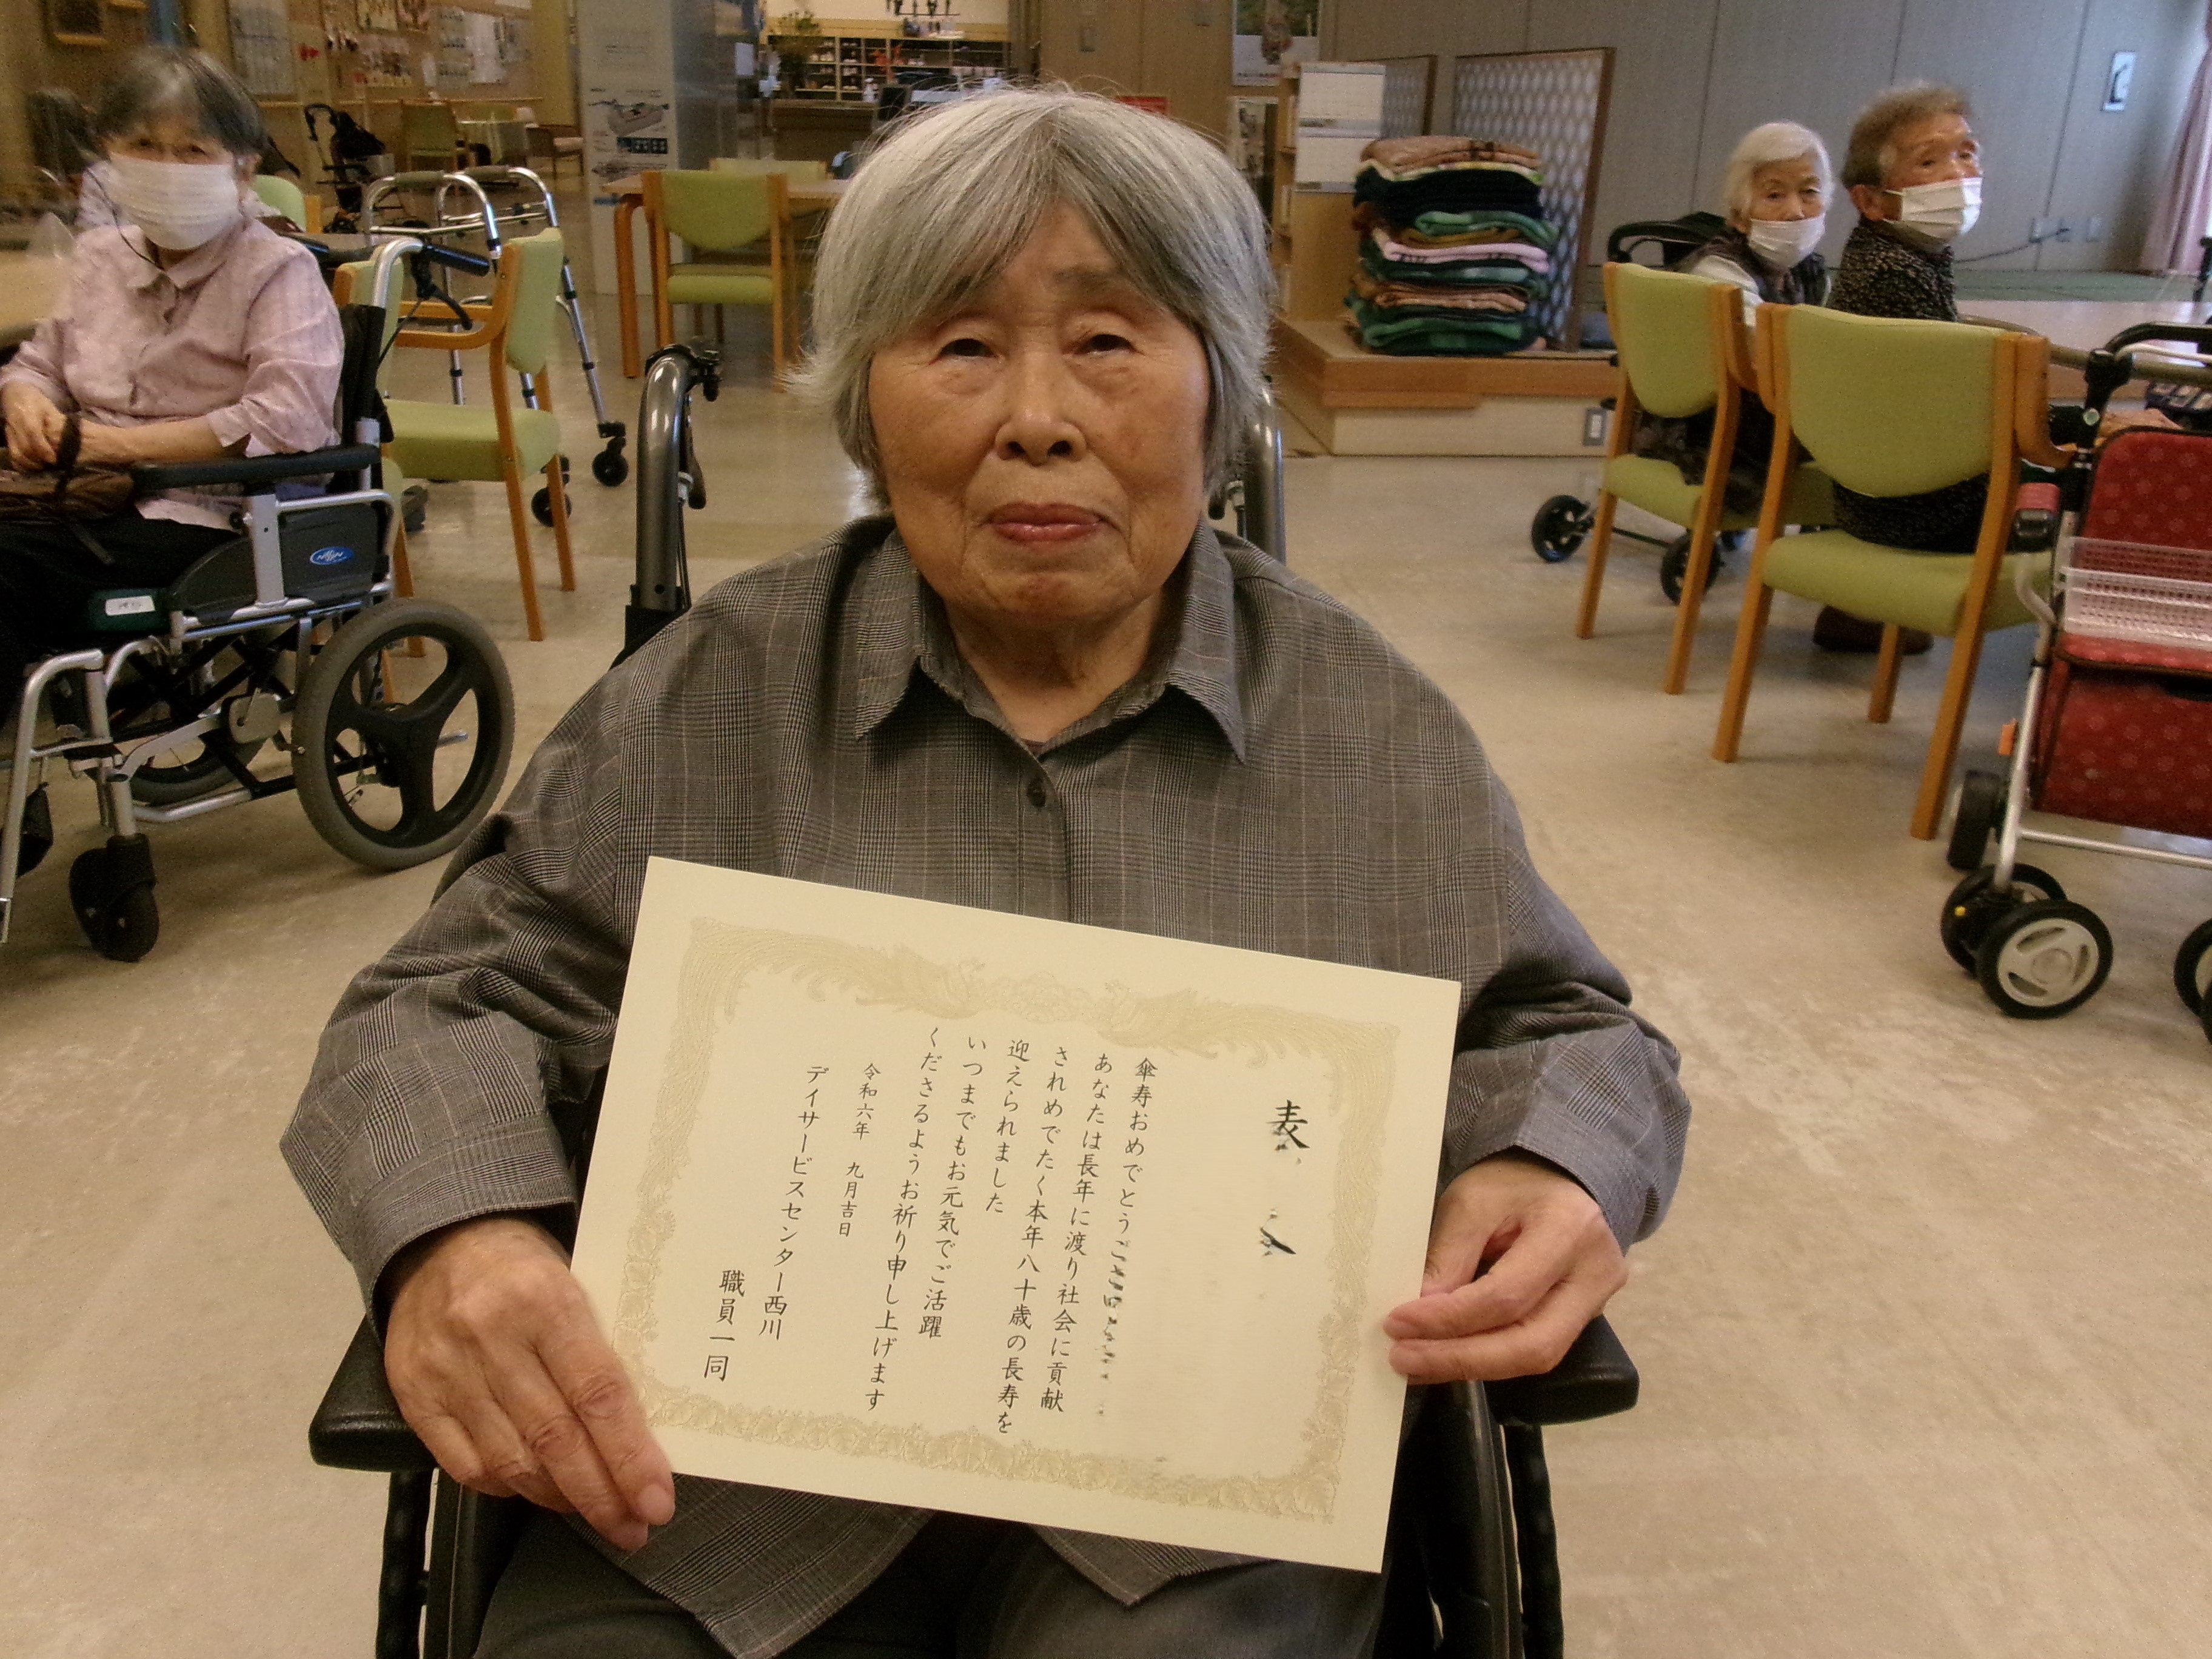 表
傘寿おめでとうご
あなたは長年に渡り社会に貢献
されめでたく本年八十歳の長寿を
迎えられました
いつまでもお元気でご活躍
くださるようお祈り申し上げます
令和六年 九月吉日
デイサービスセンター西川
職員一同